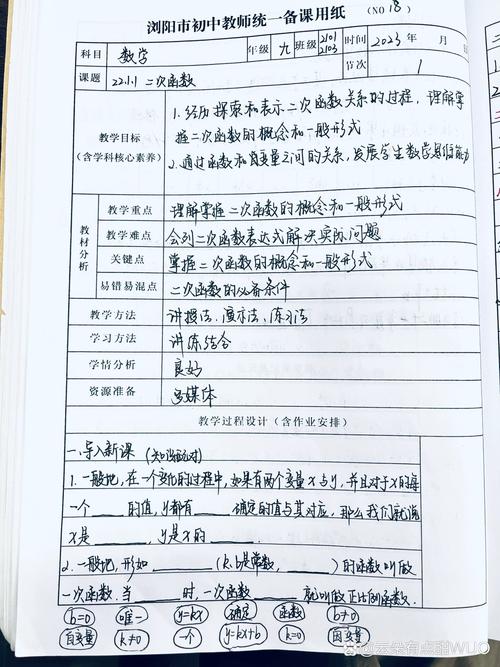 浏阳市初中教师统一备课用纸 (NO 18)
科目 数学 年级 九 班级 2101 2103 时间 2023年 月 日
课题 22.1.1 二次函数 节次 1
教学目标
(含学科核心素养)
1.经历探索和表示二次函数关系的过程,理解掌
握二次函数的概念和一般形式
2.通过函数和自变量之间的关系,发展学生数学思维能力
教材分析
教学重点 理解掌握二次函数的概念和一般形式
教学难点 会列二次函数表达式解决实际问题
关键点 掌握二次函数的概念和一般形式
易错易混点 二次函数的必备条件
教学方法 讲授法、演示法、练习法
学习方法 讲练结合
学情分析 良好
资源准备 多媒体
教学过程设计(含作业安排)
一.导入新课
1.一般地,在一个变化的过程中,如果有两个变量x与y,并且对于x的每
一个____的值,y都有____确定的值与其对应,那么我们就说
x是____,y是x的____.
2.一般地,形如________(k、b是常数,______)的函数叫做
一次函数.当____时,一次函数______就叫做正比例函数.
b=0 唯一 y=kx 确定 函数 b≠0
自变量 k≠0 一个 y=kx+b k=0 因变量
@云朵有点甜WUO